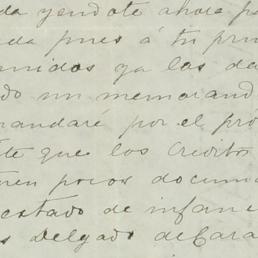 da yendote ahora pa
da pues á tu prim
unidos ya las da
do un memorand
mandare por el pró
te que los Creditos
tren pocos docum
estado de infan
s Delgado de Cara